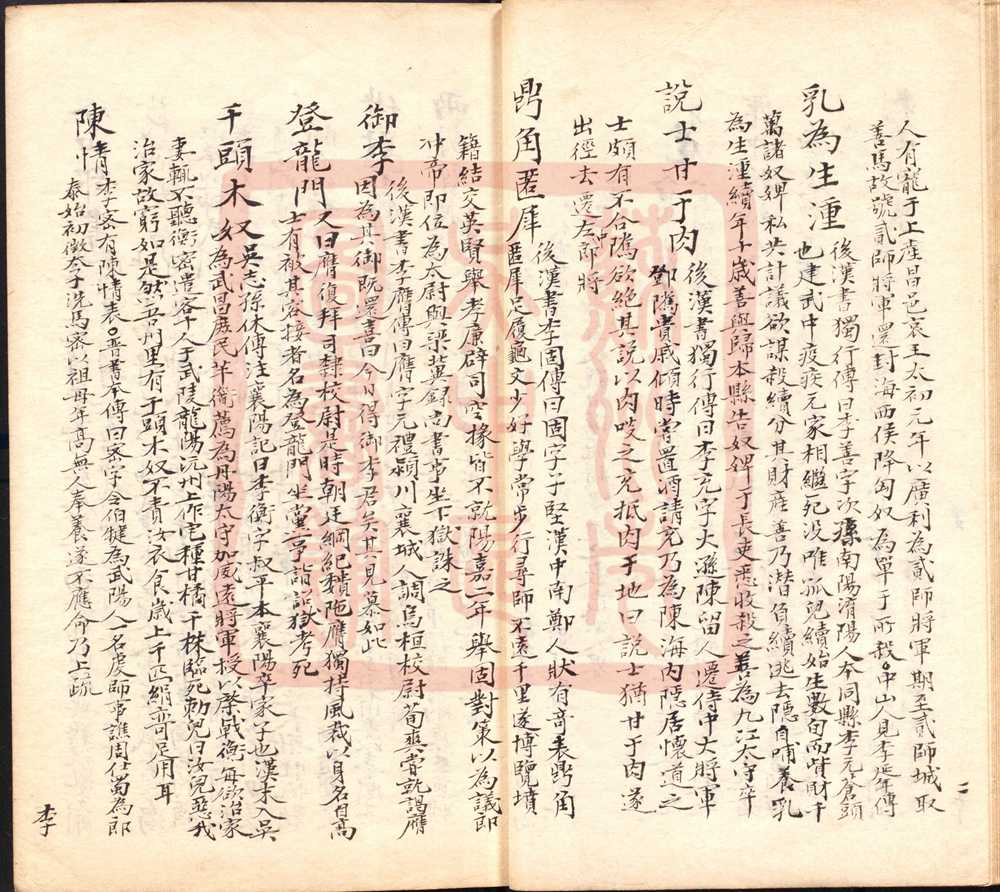 人有寵于上產昌邑哀王太初元年以廣利為貳師將軍期至貳師城取
善馬故號貳師將軍還封海西侯降匈奴為單于所殺○中山人見李延年傳
乳為生湩
後漢書獨行傳曰李善字次孫南陽淯陽人本同縣李元蒼頭
也建武中疫疾元家相繼死没唯孤兒續始生數旬而貲財千
萬諸奴婢私共計議欲謀殺續分其財產善乃潛負續逃去隱自哺養乳
為生湩續年十歲善與歸本縣告奴婢于長吏悉收殺之善為九江太守卒
說士甘于肉
後漢書獨行傳曰李充字大遜陳留人遷侍中大將軍
鄧隲貴戚傾時嘗置酒請充乃為陳海内隱居懷道之
士頗有不合隲欲絶其說以肉啖之充抵肉于地曰說士猶甘于肉遂
出徑去遷左郎將
鼎角匿犀
後漢書李固傳曰固字子堅漢中南鄭人狀有奇表鼎角
匿犀足履龜文少好學常步行尋師不遠千里遂博覽墳
籍結交英賢舉孝廉辟司空掾皆不就陽嘉二年舉固對策以為議郎
冲帝即位為太尉與梁冀録尚書事坐下獄誅之
御李
後漢書李膺傳曰膺字元禮潁川襄城人調烏桓校尉荀爽嘗就謁膺
因為其御既還喜曰今日得御李君矣其見慕如此
登龍門
又曰膺復拜司隸校尉是時朝廷綱紀穨阤膺獨持風裁以身名自高
士有被其容接者名為登龍門坐黨事詣詔獄考死
千頭木奴
吳志孫休傳注襄陽記曰李衡字叔平本襄陽卒家子也漢末入吳
為武昌庶民羊衜薦為丹陽太守加威遠將軍授以棨戟衡每欲治家
妻輒不聽衡密遣客十人于武陵龍陽汎州上作宅種甘橘千株臨死勅兒曰汝兒惡我
治家故窮如是然吾州里有千頭木奴不責汝衣食歲上千匹絹亦可足用耳
陳情
李密有陳情表○晉書本傳曰密字令伯犍為武陽人一名虔師事譙周仕蜀為郎
泰始初徵太子洗馬密以祖母年高無人奉養遂不應命乃上疏
二
李